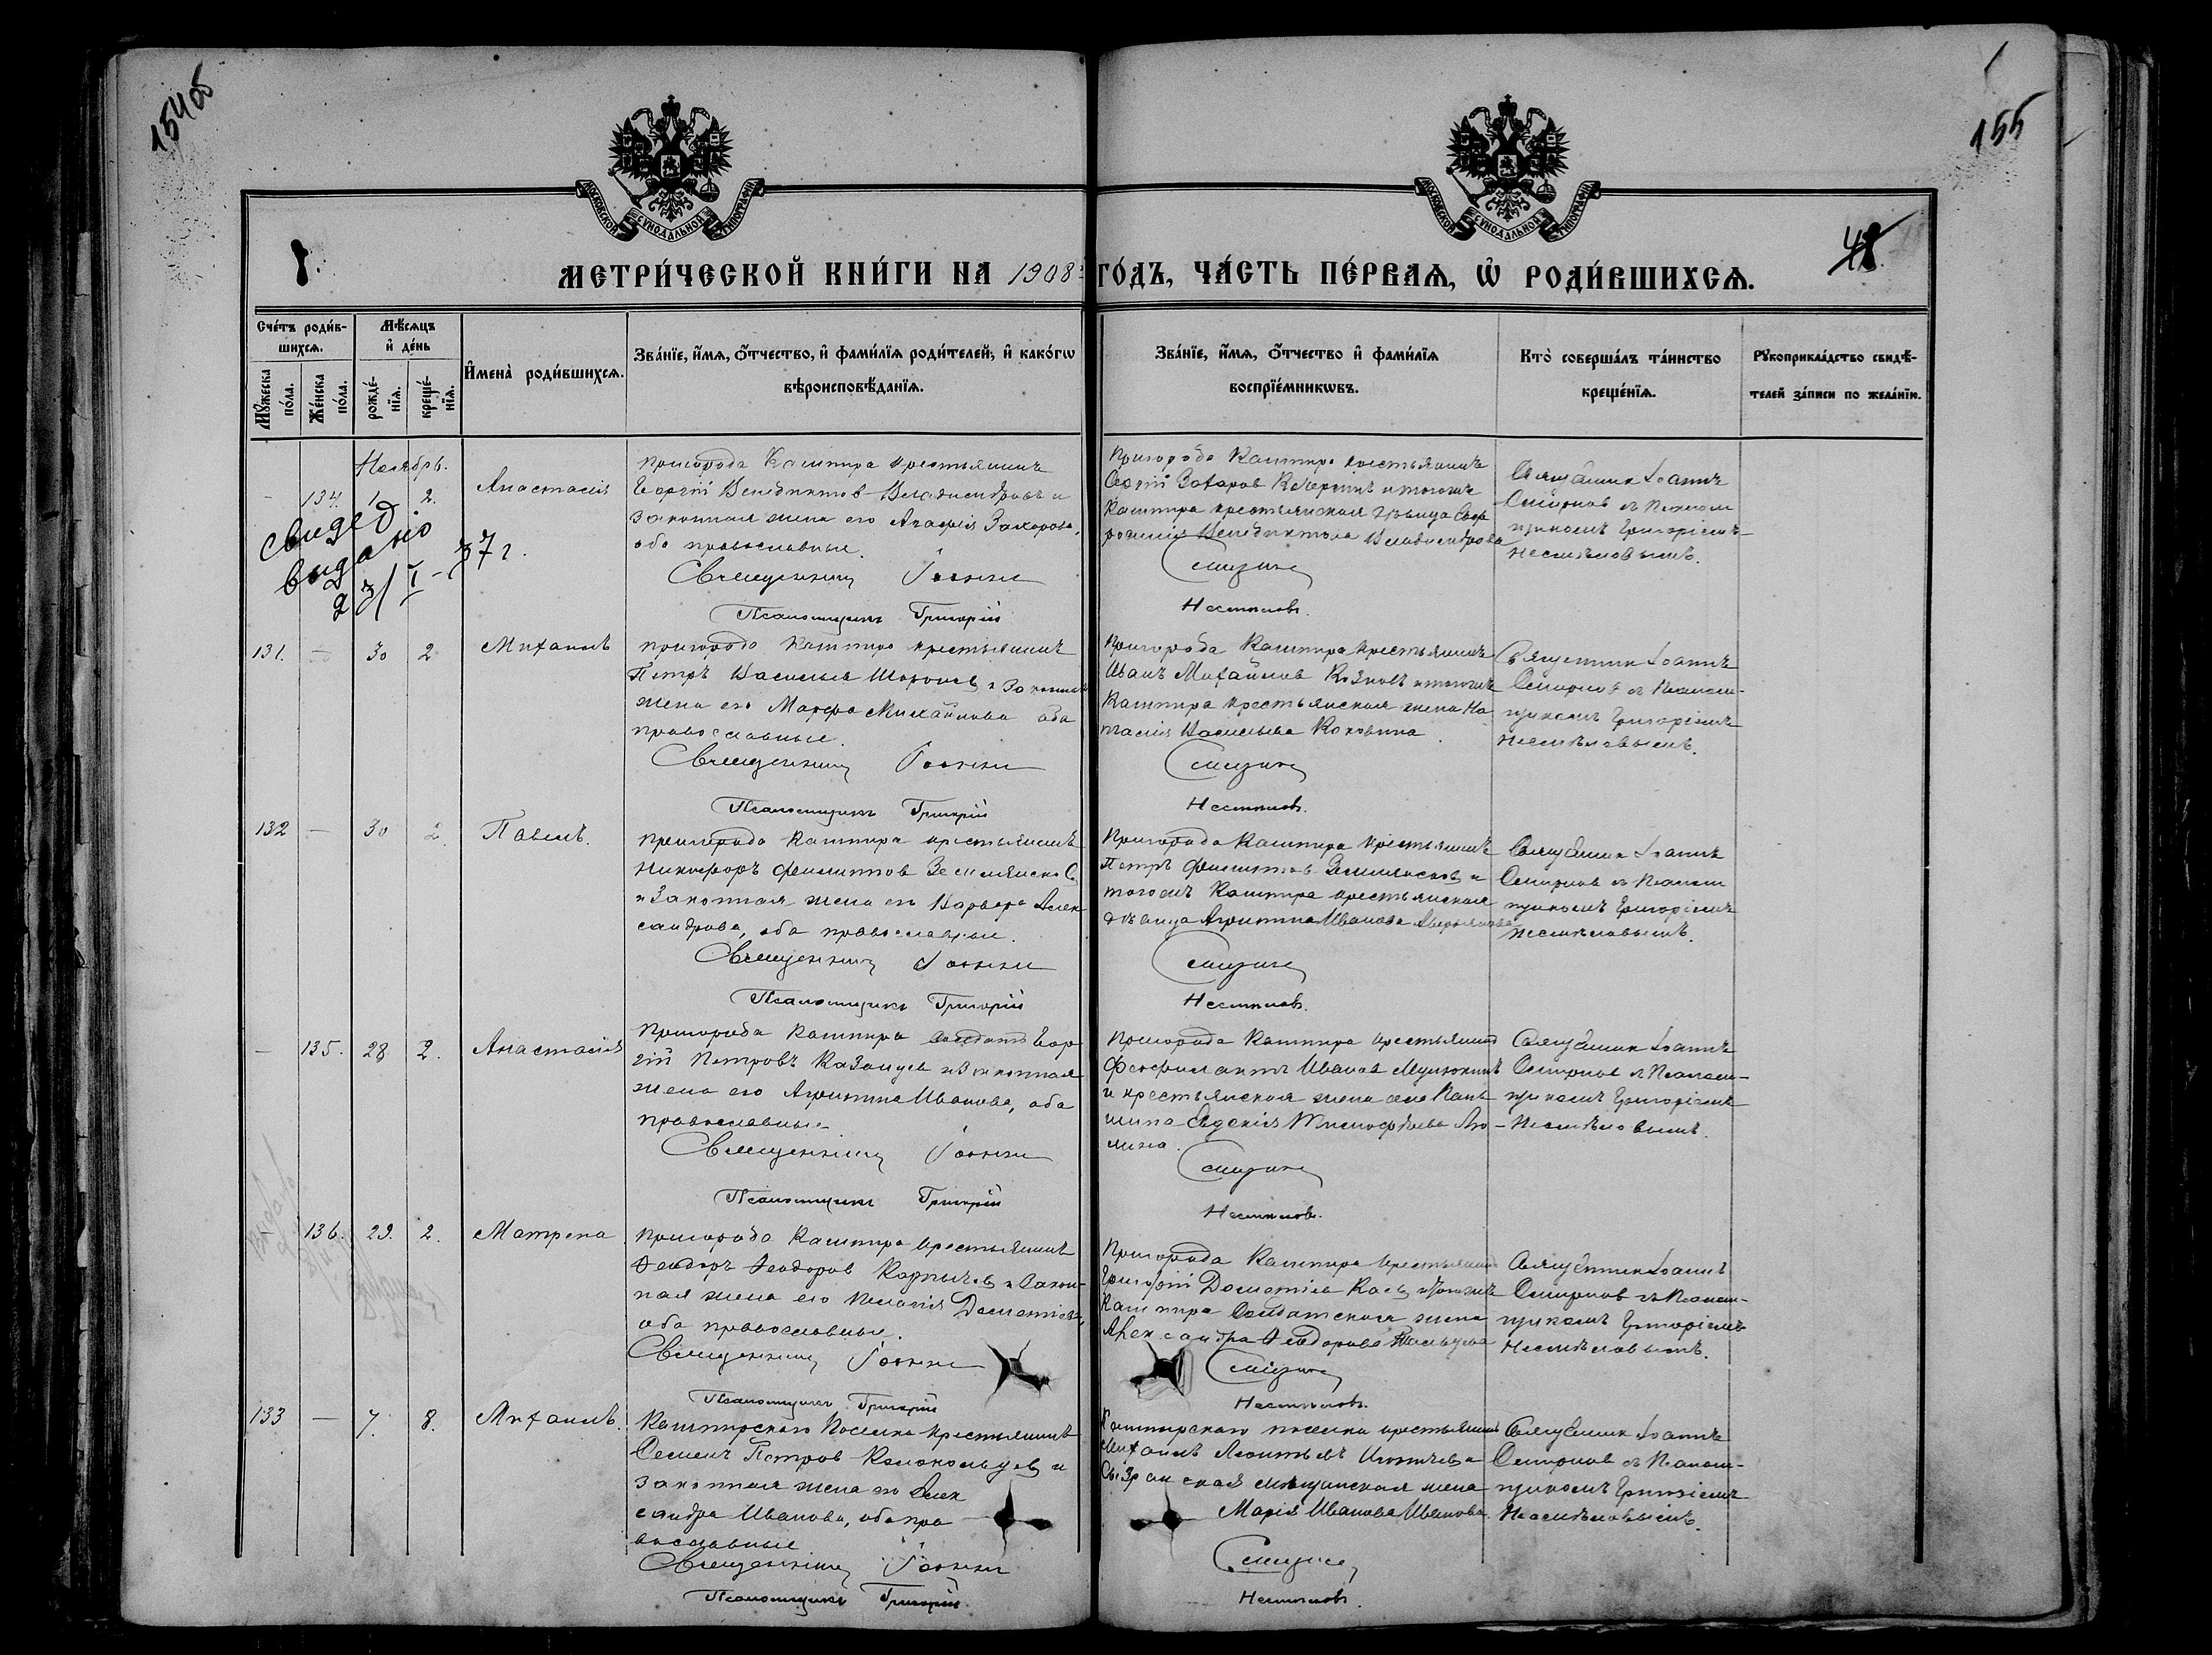 154об
155
МОСКОВСКОЙ СѴНОДАЛЬНОЙ ТИПОГРАФІИ
МОСКОВСКОЙ СѴНОДАЛЬНОЙ ТИПОГРАФІИ
МЕТРИ́ЧЕСКОЙ КНИ́ГИ НА 1908 ГО́ДЪ, ЧА́СТЬ ПЕ́РВАѦ, Ѡ҆ РОДИ́ВШИХСѦ.
Сче́тъ роди́в-
шихсѧ.
Мꙋ́жеска
по́ла.
Же́нска
по́ла.
Мѣ́сѧцъ
и҆ де́нь
рожде́-
нїѧ.
креще́-
нїѧ.
И҆мена̀ роди́вшихсѧ.
Зва́нїе, и҆́мѧ, ѻ҆́тчество, и҆ фами́лїѧ роди́телей, и҆ како́гѡ
вѣроисповѣ́данїѧ.
Зва́нїе, и҆́мѧ, ѻ҆́тчество и҆ фами́лїѧ
воспрїе́мникѡвъ.
Кто̀ соверша́лъ та́инство
креще́нїѧ.
Рꙋкоприкла́дство свидѣ́-
телей за́писи по жела́нїю.
Ноябрь.
– 134. 1 2. Анастасія
свидед
выдано
23/I-37 г.
Пригорода Кашпира крестьянинъ
Георгій Венедиктов Владимировъ и
законная жена его Агафія Захарова,
оба православные.
Священник Іоанн
Псаломщикъ Григорій
Пригорода Кашпира крестьянинъ
Сергій Захаров и тогоже
Кашпира крестьянская дѣвица
Венедиктова Владимирова
Смирнов
Несмѣлов.
Священник Іоаннъ
Смирнов съ Псалом
щикомъ Григоріемъ
Несмѣловымъ.
131. – 30 2 Михаилъ
Пригорода Кашпира крестьянинъ
Петръ Васильев и законная
жена его Марфа Михайлова оба
православные.
Священник Іоанн
Псаломщикъ Григорій
Пригорода Кашпира крестьянинъ
Иванъ Михайлов Козловъ и тогоже
Кашпира крестьянская жена На
талія Васильева
Смирнов
Несмѣлов.
Священник Іоаннъ
Смирнов съ Псалом-
щикомъ Григоріемъ
Несмѣловымъ.
132 – 30 2. Павелъ.
Пригорода Кашпира крестьянинъ
Никифоръ Филиппов
и законная жена его Варвара Алек
сандрова, оба православные.
Священник Іоанн
Псаломщикъ Григорій
Пригорода Кашпира крестьянинъ
Петръ Филиппов и
тогоже Кашпира крестьянская
дѣвица Агриппина Иванова
Смирнов
Несмѣлов.
Священник Іоаннъ
Смирнов съ Псалом
щикомъ Григоріемъ
Несмѣловымъ.
– 135. 28. 2. Анастасія
Пригорода Кашпира солдатъ Геор
гій Петровъ Казанцев и законная
жена его Агриппина Иванова, оба
православные
Священник Іоанн
Псаломщикъ Григорій
Пригорода Кашпира крестьянин
Феофилактъ Иванов
и крестьянская жена села Пань
шина Евдокія
Смирнов
Несмѣлов.
Священник Іоаннъ
Смирнов съ Псалом-
щикомъ Григоріемъ
Несмѣловымъ.
136. 29. 2. Матрена
Пригорода Кашпира крестьянинъ
Ѳеодоръ Ѳеодоров Карпычев и закон-
ная жена его Пелагія
оба православные.
Священник Іоанн
Псаломщикъ Григорій
Пригорода Кашпира крестьянин
Григорій и тогоже
Кашпира солдатская жена
Александра Ѳеодорова
Смирнов
Несмѣлов.
Священник Іоаннъ
Смирнов съ Псалом-
щикомъ Григоріемъ
Несмѣловымъ.
133 – 7. 8. Михаилъ.
Кашпирскаго Поселка крестьянинъ
Семенъ Петров Колокольцев и
законная жена его Алек
сандра Иванова, оба пра
вославные
Священник Іоанн
Псаломщикъ Григорій
Кашпирскаго поселка крестьянинъ
Михаилъ Леонтьевъ и
Сызранская мѣщанская жена
Марія Иванова Иванова.
Смирнов
Несмѣлов.
Священник Іоаннъ
Смирнов съ Псалом-
щикомъ Григоріемъ
Несмѣловымъ.